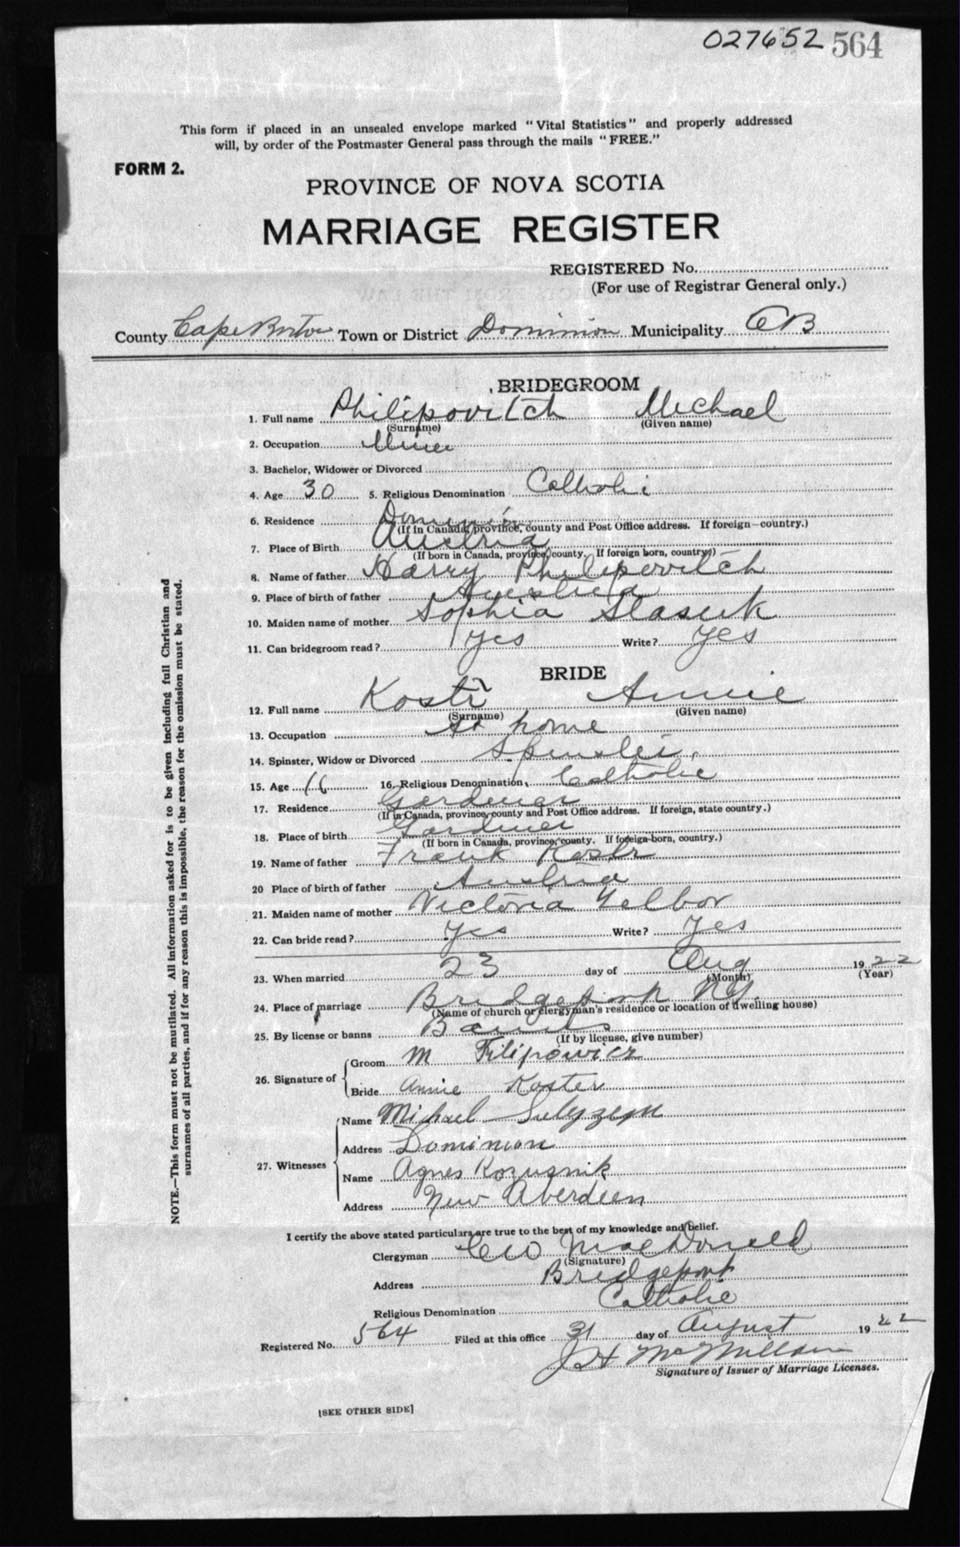 027652 564
This form if placed in an unsealed envelope marked "Vital Statistics" and properly addressed
will, by order of the Postmaster General pass through the mails "FREE."
FORM 2.
PROVINCE OF NOVA SCOTIA
MARRIAGE REGISTER
REGISTERED No.
(For use of Registrar General only.)
County Cape Breton Town or District Dominion Municipality CB
BRIDEGROOM
1. Full name Philipovitch Michael
(Surname) (Given name)
2. Occupation Miner
3. Bachelor, Widower or Divorced
4. Age 30 5. Religious Denomination Catholic
6. Residence Dominion
(If in Canada, province, county and Post Office address. If foreign—country.)
7. Place of Birth Austria
(If born in Canada, province, county. If foreign born, country)
8. Name of father Harry Philipovitch
9. Place of birth of father Austria
10. Maiden name of mother Sophia Slasuk
11. Can bridegroom read? yes Write? yes
BRIDE
12. Full name Annie
(Surname) (Given name)
13. Occupation At home
14. Spinster, Widow or Divorced Spinster
15. Age 16 16. Religious Denomination Catholic
17. Residence Gardiner
(If in Canada, province, county and Post Office address. If foreign, state country.)
18. Place of birth Gardiner
(If born in Canada, province, county. If foreign-born, country.)
19. Name of father Frank
20 Place of birth of father Austria
21. Maiden name of mother Victoria
22. Can bride read? yes Write? yes
23. When married 23 day of Aug 1922
(Month) (Year)
24. Place of marriage Bridgeport
(Name of church or clergyman's residence or location of dwelling house)
25. By license or banns Banns
(If by license, give number)
26. Signature of
Groom M Filipowicz
Bride Annie Koster
27. Witnesses
Name Michael
Address Dominion
Name Agnes Kozusnik
Address New Aberdeen
I certify the above stated particulars are true to the best of my knowledge and belief.
Clergyman Geo MacDonald
(Signature)
Address Bridgeport
Religious Denomination Catholic
Registered No. 564 Filed at this office 31 day of August 1922
J H McMillan
Signature of Issuer of Marriage Licenses.
[SEE OTHER SIDE]
NOTE.—This form must not be mutilated. All information asked for is to be given including full Christian and
surnames of all parties, and if for any reason this is impossible, the reason for the omission must be stated.